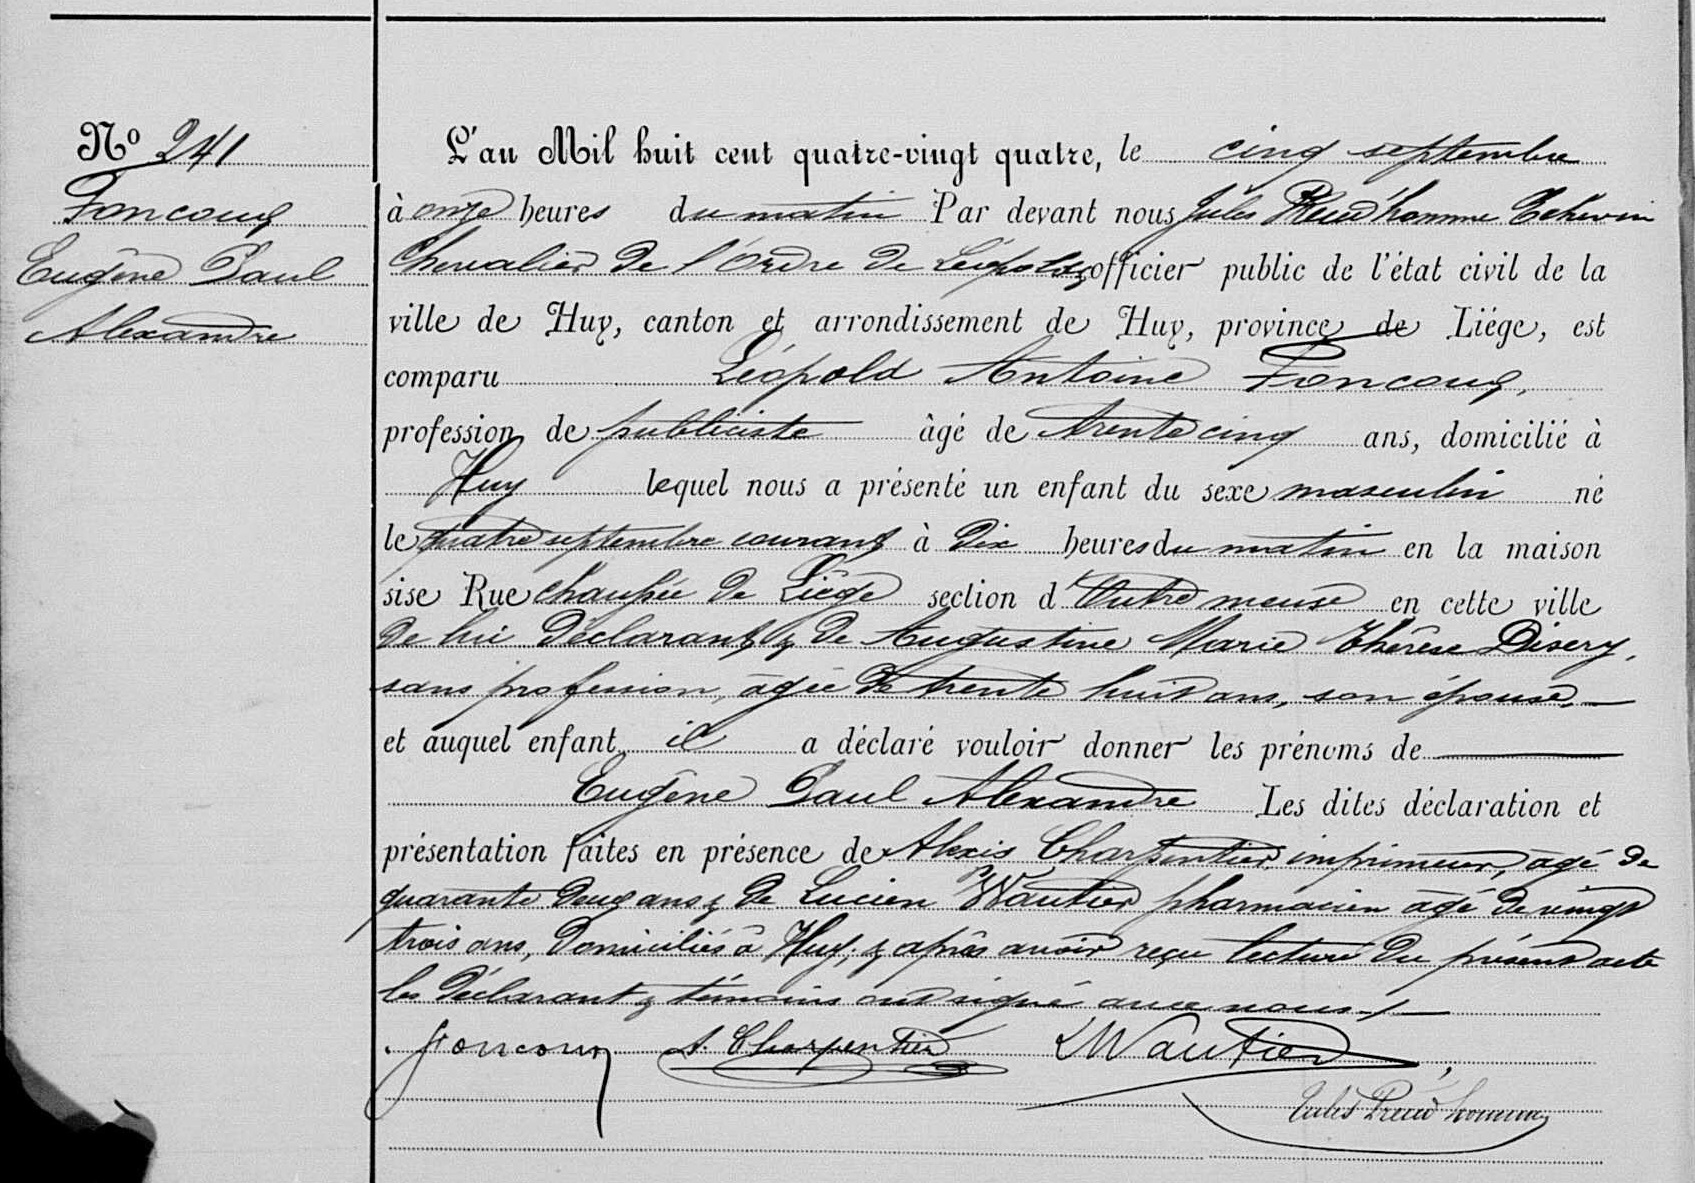 No 241
Foncoux
Eugène Paul
Alexandre
L'an Mil huit cent quatre-vingt quatre, le cinq septembre
à onze heures du matin Par devant nous Jules Preud'homme Echevin
Chevalier de l'Ordre de Léopold, officier public de l'état civil de la
ville de Huy, canton et arrondissement de Huy, province de Liége, est
comparu Léopold Antoine Foncoux,
profession de publiciste âgé de trente cinq ans, domicilié à
Huy lequel nous a présenté un enfant du sexe masculin né
le quatre septembre courant à dix heures du matin en la maison
sise Rue chaussée de Liége section d'Outre meuse en cette ville
de lui déclarant & de Augustine Marie Thérèse Disery,
sans profession, âgée de trente huit ans, son épouse,
et auquel enfant il a déclaré vouloir donner les prénoms de
Eugène Paul Alexandre Les dites déclaration et
présentation faites en présence de Alexis Charpentier, imprimeur, âgé de
quarante deux ans & de Lucien Wautier pharmacien âgé de vingt
trois ans, domiciliés à Huy, & après avoir reçu lecture du présent acte
les déclarant & témoins ont signé avec nous./.
Foncoux A. Charpentier LWautier
Jules Preud'homme